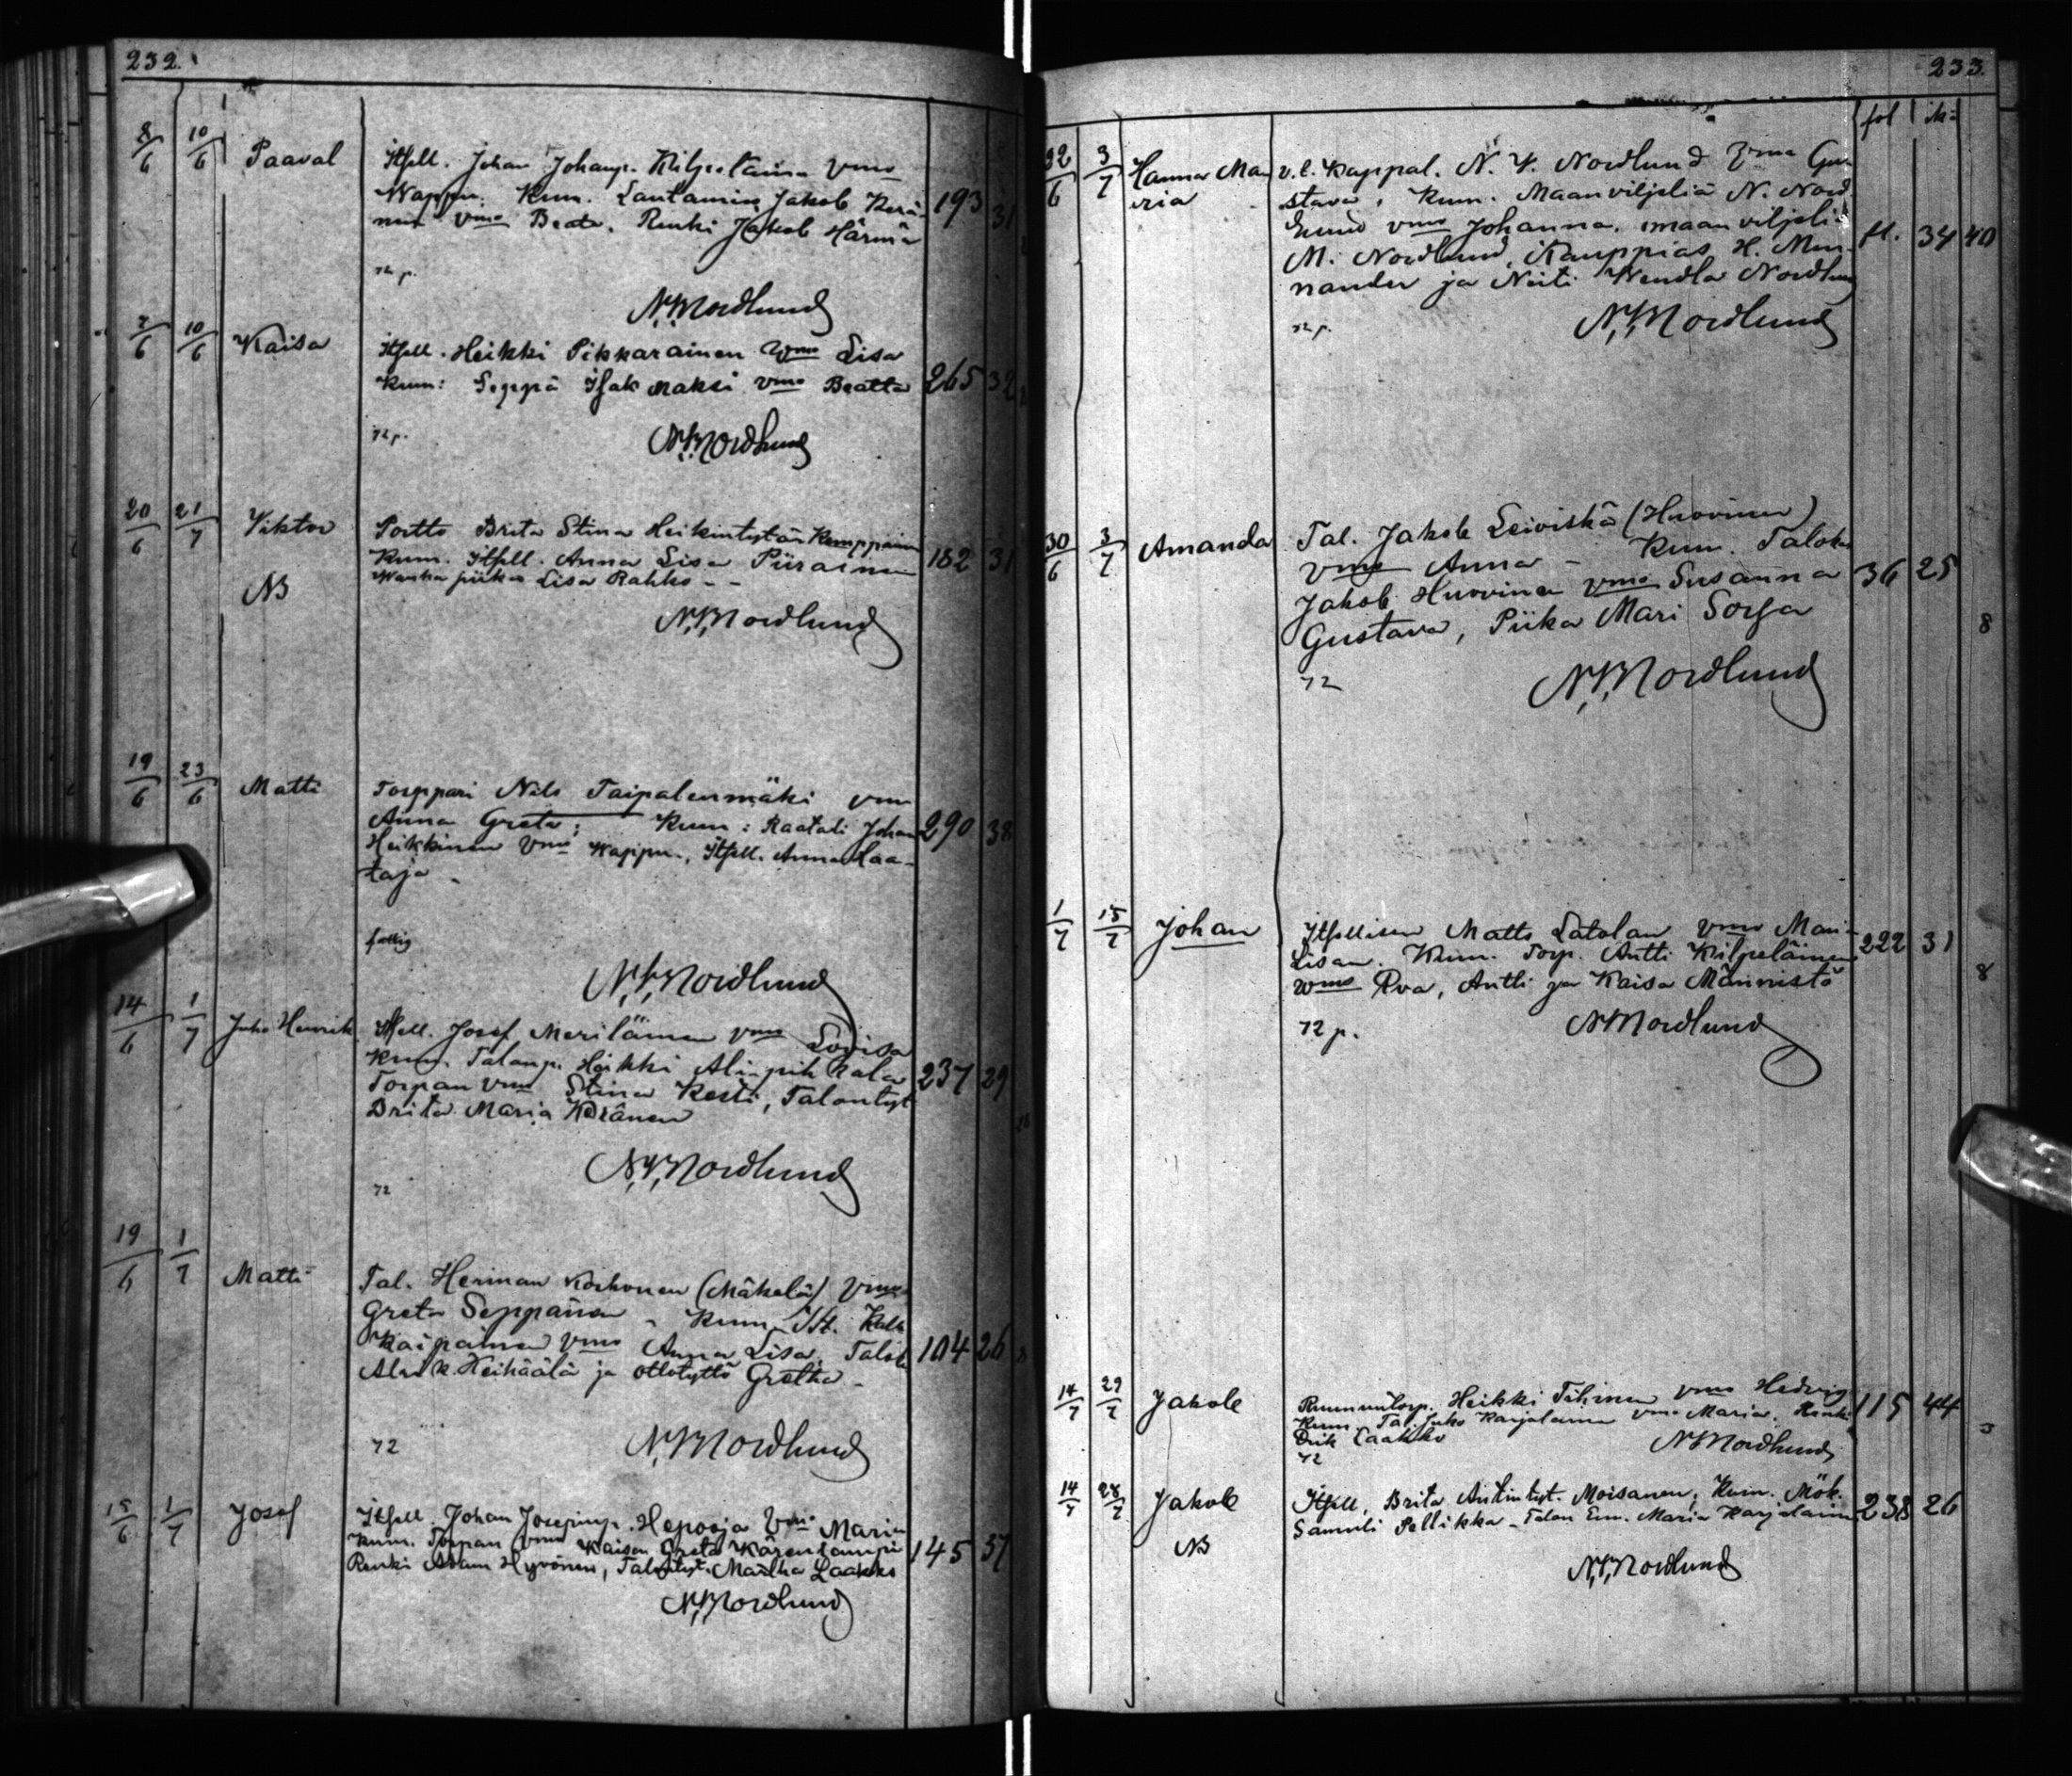 232.
8/6 10/6 Paaval Itsell. Johan Johanp. Kilpeläinen Vmo
Wappu. Kum. Lautamies Jakob Kerä-
nen Vmo Beata. Renki Jakob Härmä 193 31
72 p.
N.V. Nordlund
7/6 10/6 Kaisa Itsell. Heikki Pikkarainen Vmo Lisa
Kum: Seppä Isak Maksi Vmo Beatta 265 32
72 p.
N.V. Nordlund
20/6 21/7 Viktor Portto Brita Stina Heikintytär Kemppainen
NB Kum. Itsell. Anna Lisa Piirainen 182 31
Wanha piika Lisa Rahko - -
N.V. Nordlund
19/6 23/6 Matti Torppari Nils Taipalenmäki vmo
Anna Greta; Kum: Räätäli Johan 290 38
Heikkinen Vmo Wappu, Itsell. Anna Haa-
taja -
fattig
N.V. Nordlund
14/6 1/7 Juho Henrik Itsell. Josef Meriläinen Vmo Lovisa
Kum. Talonp. Heikki Alin-pik Kala 237 29
Torpan vmo Stina Kesti, Talontyt
Brita Maria Keränen
N.V. Nordlund
72
19/6 1/7 Matti Tal. Herman Korhonen (Mäkelä) Vmo
Greta Seppänen - Kum. Its. Kalle
Kaipainen Vmo Anna Lisa, Talok. 104 26
Heikäälä ja ottotyttö Gretha -
72 N.V. Nordlund
15/6 1/7 Josef Itsell. Johan Josepinp. Hepooja Vmo Maria
Kum. Torpan vmo Kaisa Greta Kärenlampi 145 37
Renki Adam Hyvönen, Talontyt. Martha Laakko
N.V. Nordlund
233.
fol ikä
22/6 3/7 Hanna Ma- v.t. Kappal. N. V. Nordlund Vmo Gu-
ria stava, Kum. Maanviljeliä N. Nord-
lund vmo Johanna, maanviljeliä
M. Nordlund, Kauppias H. Mun- fl. 34 40
nander ja Neiti Wendla Nordlund
72 p. N.V. Nordlund
30/6 3/7 Amanda Tal. Jakob Leiviskä (Huovinen)
Vmo Anna - Kum. Talok.
Jakob Huovinen Vmo Susanna 36 25
Gustava, Piika Mari Sorsa
8
72 N.V. Nordlund
1/7 15/7 Johan Itsellisen Matts Latolan Vmo Mari
Lisan. Kum. Torp. Antti Kilpeläinen 222 31
Wmo Eva, Antti ja Kaisa Männistö
8
72 p. N.V. Nordlund
14/7 29/7 Jakob Ruununtorp. Heikki Tihinen Vmo Hedvig
Kum. Tal. Juho Karjalainen Vmo Maria. Renki 115 44
Erik Laakko
72 N.V. Nordlund
14/7 28/7 Jakob Itsell. Brita Antintyt. Moisanen, Kum. Mök.
NB Samuli Pellikka - Talon Em. Maria Karjalainen 238 26
N.V. Nordlund